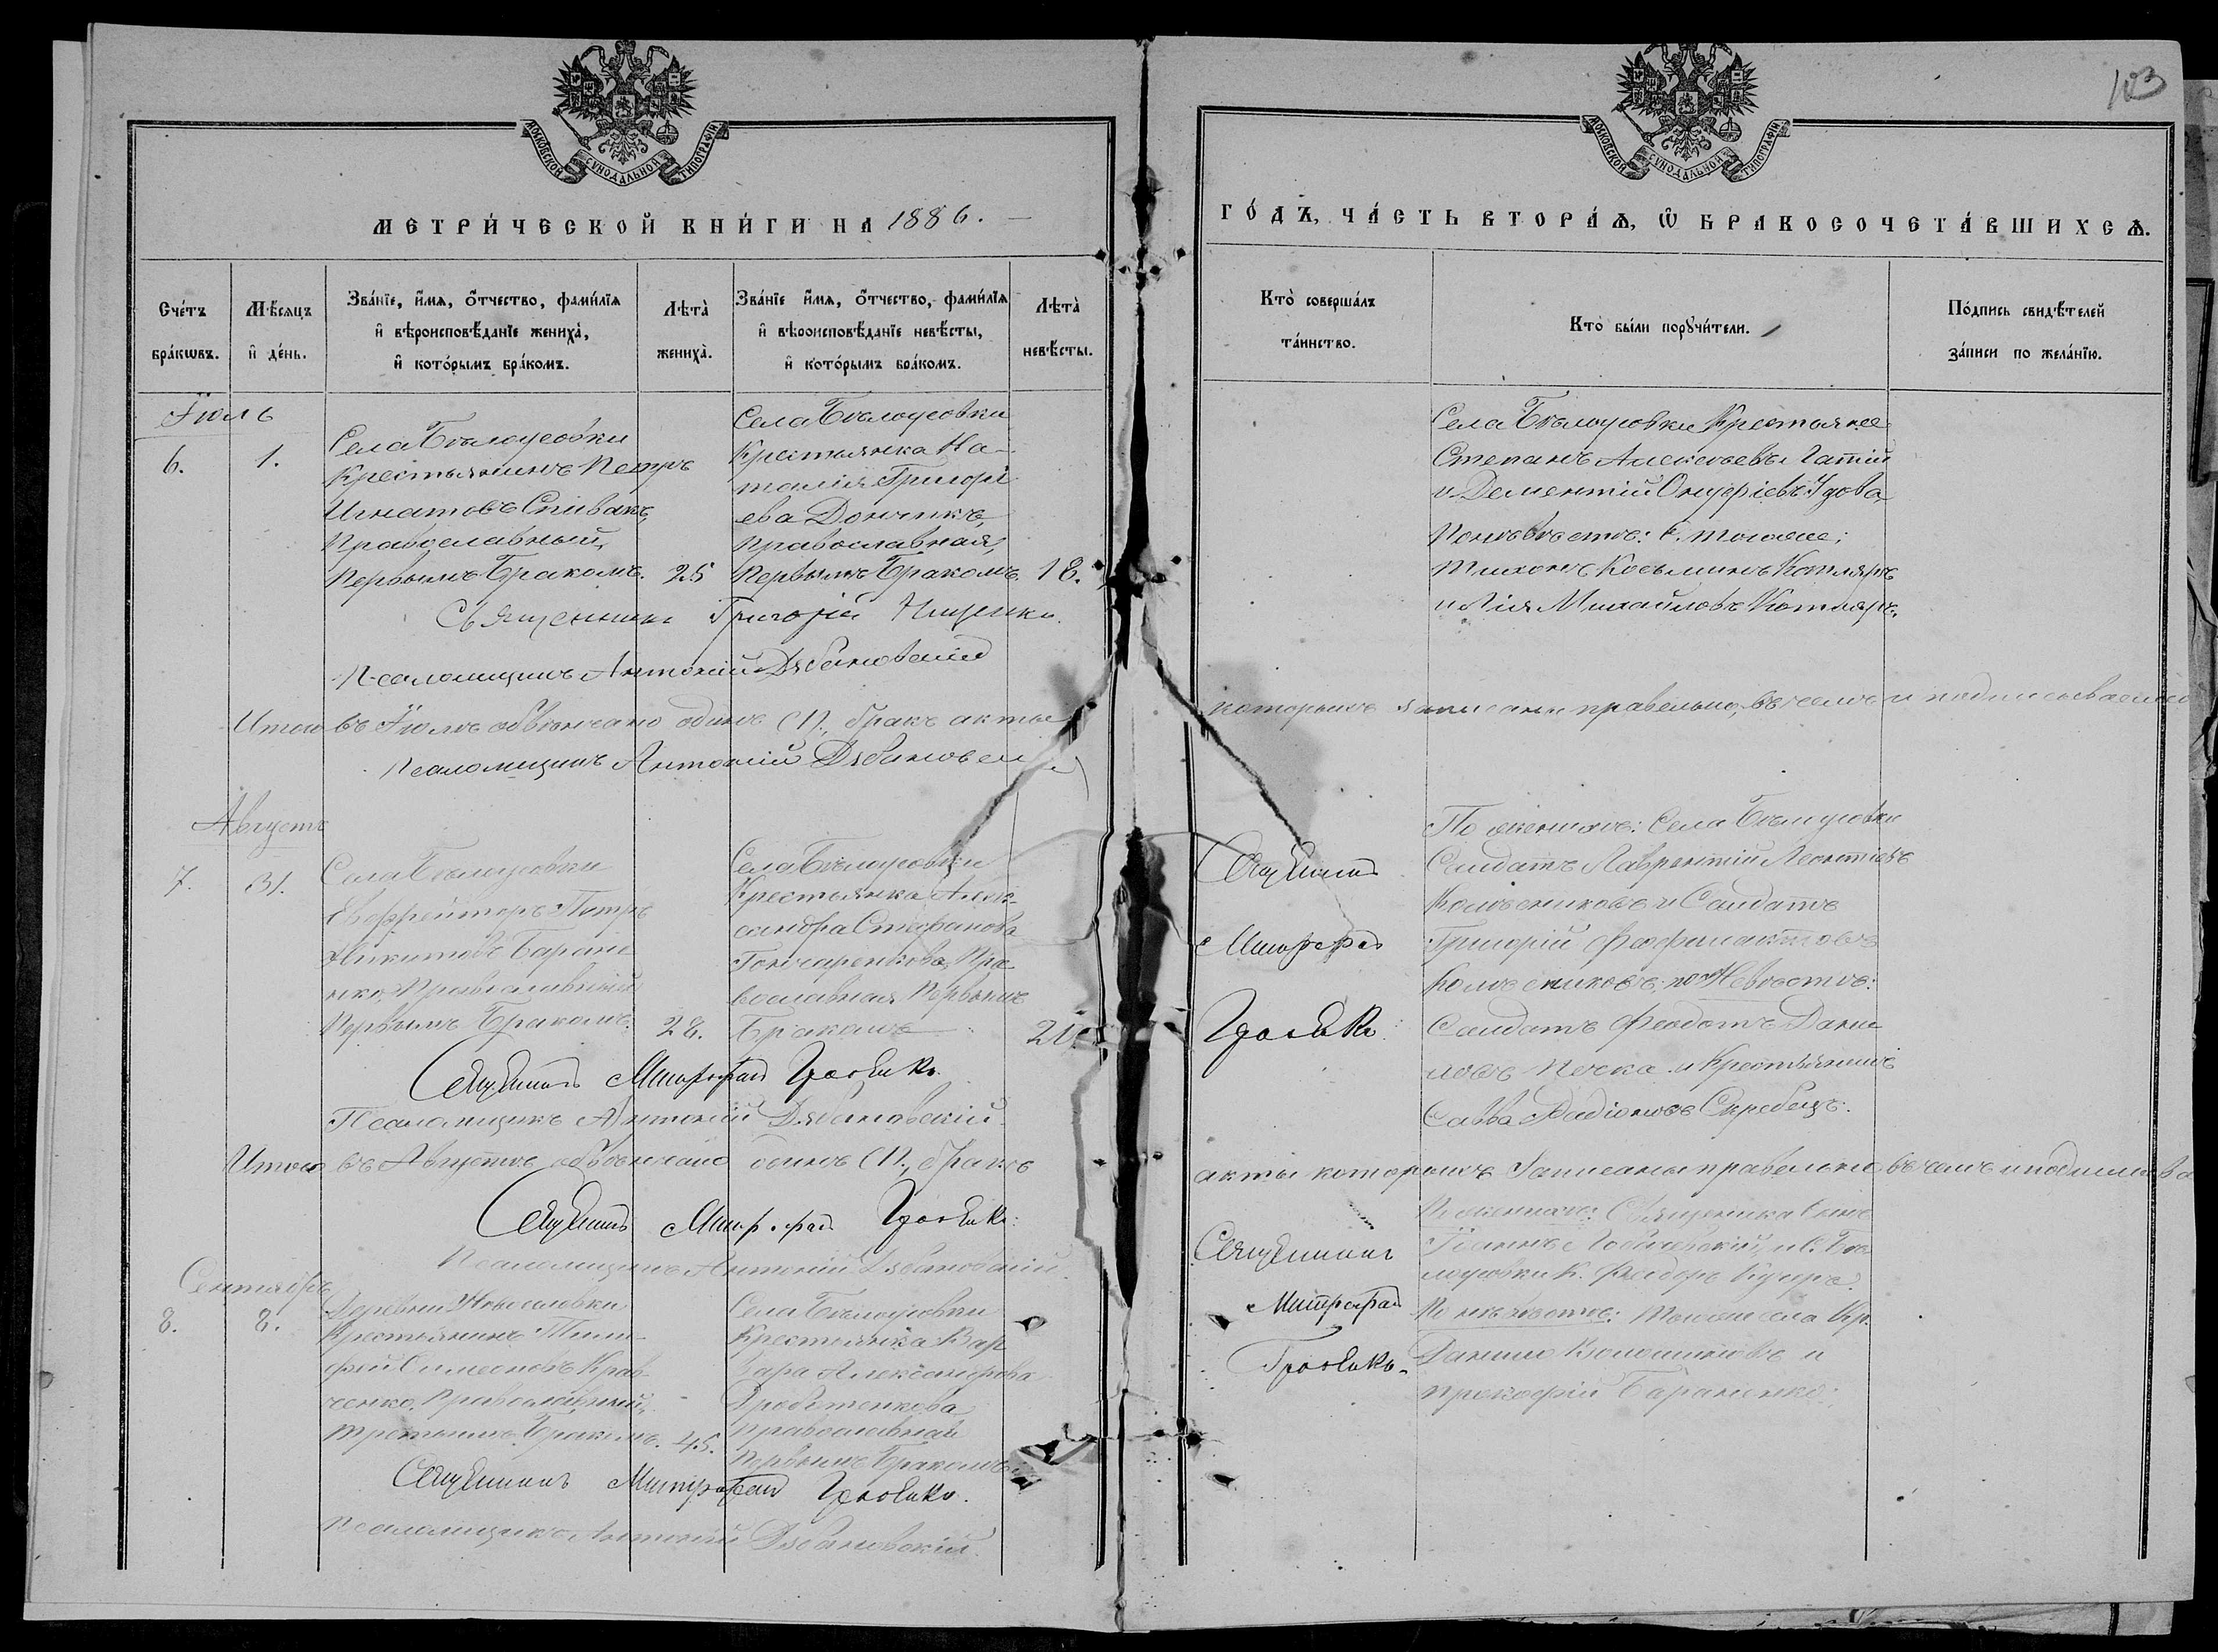 103
МОСКОВСКОЙ СѴНОДАЛЬНОЙ ТИПОГРАФІИ
МОСКОВСКОЙ СѴНОДАЛЬНОЙ ТИПОГРАФІИ
МЕТРИ́ЧЕСКОЙ КНИ́ГИ НА 1886.
ГО́ДЪ, ЧА́СТЬ ВТОРА́Ѧ, Ѿ БРАКОСОЧЕТА́ВШИХСѦ.
Сче́тъ бра́кѡвъ.
Мѣ́сѧцъ и҆ де́нь.
Зва́нїе, и҆́мѧ, ѻ҆́тчество, фами́лїѧ
и҆ вѣроисповѣ́данїе жениха̀,
и҆ кото́рымъ бра́комъ.
Лѣта̀ жениха̀.
Зва́нїе и҆́мѧ, ѻ҆́тчество, фами́лїѧ
и҆ вѣроисповѣ́данїе невѣ́сты,
и҆ кото́рымъ бра́комъ.
Лѣта̀ невѣ́сты.
Кто̀ соверша́лъ
та́инство.
Кто̀ бы́ли порꙋчи́тели.
По́дпись свидѣ́телей
за́писи по жела́нїю.
Іюль
6.
1.
Села Бѣлоусовки
Крестьянинъ Петръ
Игнатовъ Співакъ,
Православный,
Первымъ Бракомъ.
25
Села Бѣлоусовки
Крестьянка На-
талія Григорі
ева Дончикъ,
Православная,
Первымъ Бракомъ.
18.
Села Бѣлоусовки Крестьяне
Степанъ Алексѣевъ
и Дементій Онуфріевъ Удова,
По невѣстѣ: тогоже:
Тихонъ Косьминъ Котляръ
и Ілія Михайловъ Котляръ.
Священникъ Григорій Ищенко.
Псаломщикъ Антоній Дзбановскій
Итого въ Іюлѣ обвѣнчано одинъ (1), бракъ акты
которыхъ записаны правельно, въ чемъ и подписываемся
Псаломщикъ Антоній Дзбановскій
Августъ
7.
31.
Села Бѣлоусовки
Евфрейторъ Петръ
Никитовъ Баране
нко, Православный
Первымъ Бракомъ.
28.
Села Бѣлоусовки
Крестьянка Алек-
сандра Стефанова
Гончаренкова, Пра
вославная Первымъ
Бракомъ
21.
Священникъ
Митрофанъ
По женихѣ: Села Бѣлоусовки
Салдатъ Лаврентій Леонтіевъ
Колѣсниковъ и Салдатъ
Григорій Феофилактовъ
Колѣсниковъ; по Невѣстѣ:
Салдатъ Феодотъ Дани
ловъ и Крестьянинъ
Савва Радіоновъ Скребецъ.
Священникъ Митрофанъ
Псаломщикъ Антоній Дзбановскій.
Итого въ Августѣ обвѣнчано одинъ (1), бракъ
акты которыхъ Записаны правельно въ чемъ и подписыва
Священникъ Митрофанъ
Псаломщикъ Антоній Дзбановскій.
Сентябрь
8.
8.
Деревни
Крестьянинъ Тимо
фей Симеоновъ Крав-
ченко, Православный,
третьимъ Бракомъ.
45.
Села Бѣлоусовки
Крестьянка Вар
вара Александрова
православная
Первымъ Бракомъ
Священникъ
Митрофанъ
По женихѣ: Священика сынъ
Іоаннъ и с. Бѣ
лоусовки К. Феодоръ Кучеръ.
По невѣстѣ: тогоже села Кр.
Даніилъ Волошиновъ и
Прокофій Бараненко.
Священникъ Митрофанъ
Псаломщикъ Антоній Дзбановскій.